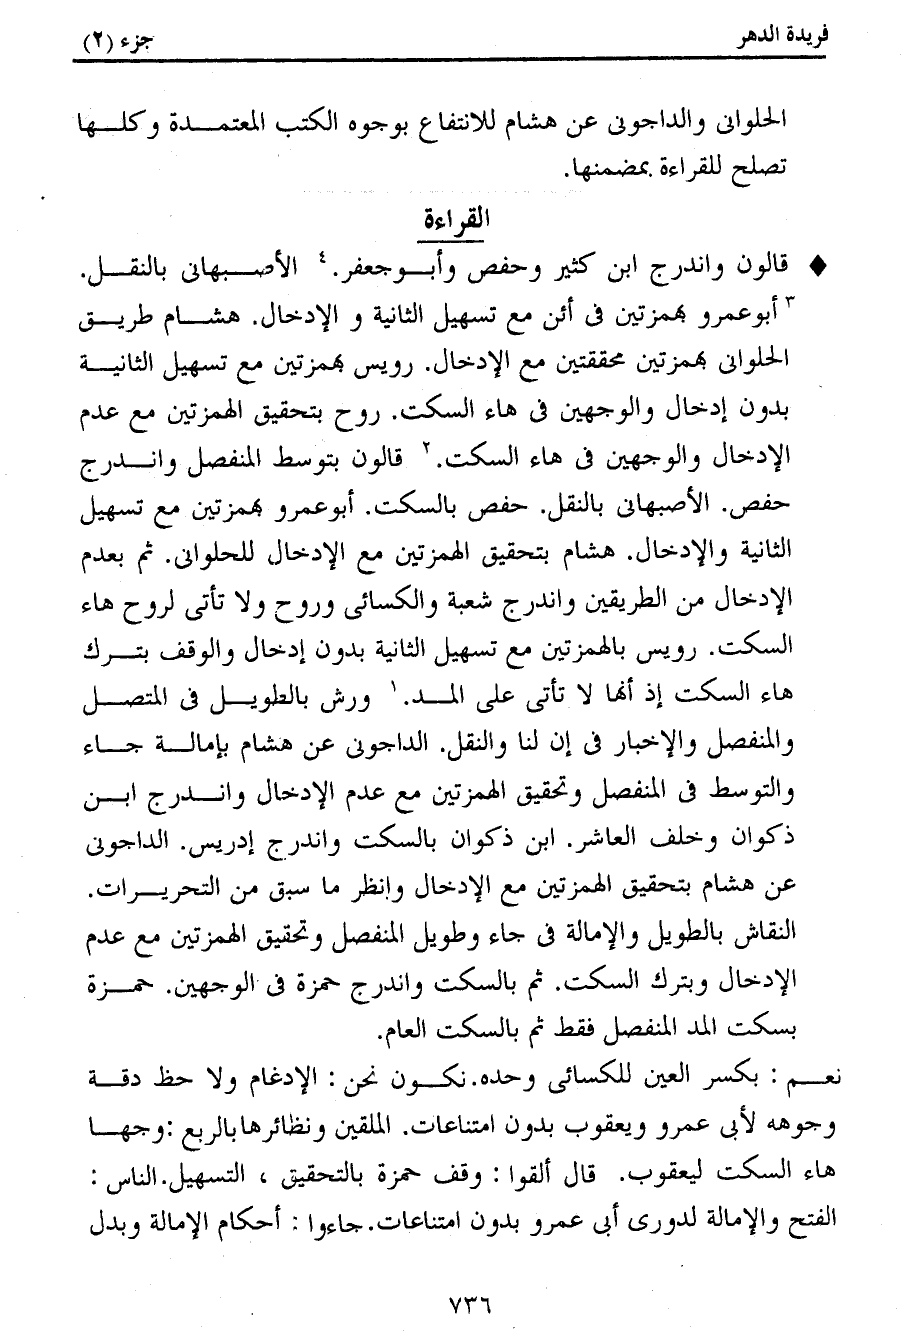 فريدة الدهر
جزء (٢)
الحلوانى والداجونى عن هشام للانتفاع بوجوه الكتب المعتمدة وكلها
تصلح للقراءة بمضمنها.
القراءة
♦ قالون واندرج ابن كثير وحفص وأبوجعفر.٤ الأصبهانى بالنقل.
٣ أبوعمرو بهمزتين فى أئن مع تسهيل الثانية و الإدخال. هشام طريق
الحلوانى بهمزتين محققتين مع الإدخال. رويس بهمزتين مع تسهيل الثانية
بدون إدخال والوجهين فى هاء السكت. روح بتحقيق الهمزتين مع عدم
الإدخال والوجهين فى هاء السكت.٢ قالون بتوسط المنفصل واندرج
حفص. الأصبهانى بالنقل. حفص بالسكت. أبوعمرو بهمزتين مع تسهيل
الثانية والإدخال. هشام بتحقيق الهمزتين مع الإدخال للحلوانى. ثم بعدم
الإدخال من الطريقين واندرج شعبة والكسائى وروح ولا تأتى لروح هاء
السكت. رويس بالهمزتين مع تسهيل الثانية بدون إدخال والوقف بترك
هاء السكت إذ أنها لا تأتى على المد.١ ورش بالطويل فى المتصل
والمنفصل والإخبار فى إن لنا والنقل. الداجونى عن هشام بإمالة جاء
والتوسط فى المنفصل وتحقيق الهمزتين مع عدم الإدخال واندرج ابن
ذكوان وخلف العاشر. ابن ذكوان بالسكت واندرج إدريس. الداجونى
عن هشام بتحقيق الهمزتين مع الإدخال وانظر ما سبق من التحريرات.
النقاش بالطويل والإمالة فى جاء وطويل المنفصل وتحقيق الهمزتين مع عدم
الإدخال وبترك السكت. ثم بالسكت واندرج حمزة فى الوجهين. حمزة
بسكت المد المنفصل فقط ثم بالسكت العام.
نعم : بكسر العين للكسائى وحده.نكون نحن : الإدغام ولا حظ دقة
وجوهه لأبى عمرو ويعقوب بدون امتناعات. الملقين ونظائرها بالربع :وجها
هاء السكت ليعقوب. قال ألقوا : وقف حمزة بالتحقيق ، التسهيل.الناس :
الفتح والإمالة لدورى أبى عمرو بدون امتناعات.جاءوا : أحكام الإمالة وبدل
٧٣٦